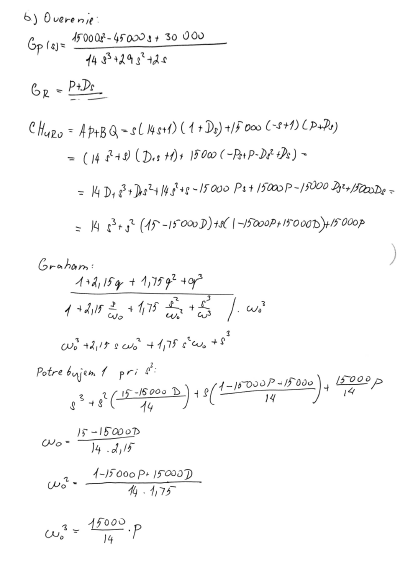 b) Overenie:
Gp(s) = (15000s - 45000s + 30 000) / (14 s³ + 29 s² + 2s)
G_R = P+Ds
CHURO = AP+BQ = s(14s+1)(1+Ds)+15 000(-s+1)(P+Ds)
= (14 s²+s)(D₁s+1)+15000(-Ps+P-Ds²+Ds) =
= 14 D₁s³+D₁s²+14s²+s-15000 Ps+15000P-15000Ds²+15000Ds =
= 14 s³+s²(15-15000D)+s(1-15000P+15000D)+15000P
Graham:
1+2,15q+1,75q²+q³
1+2,15 s/ω₀ + 1,75 s²/ω₀² + s³/ω³ /. ω₀³
ω₀³+2,15 s ω₀²+1,75 s²ω₀+s³
Potrebujem 1 pri s³:
s³+s²((15-15000 D)/14)+s((1-15000P-15000)/14)+15000/14 P
ω₀ = (15-15000D)/(14·2,15)
ω₀² = (1-15000P+15000D)/(14·1,75)
ω₀³ = 15000/14 · P